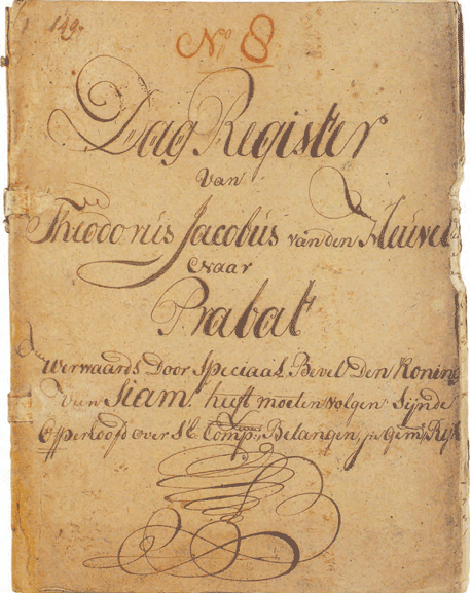 149.
No 8
Dag Register
van
Theodorus Jacobus van den Heuvel
Naar
Prabat
Werwaards Door Speciaal Bevel Den Koning
van Siam heeft moeten volgen Sijnde
Opperhoofd over 'sE. Comps. Belangen, in Gem: Rijk